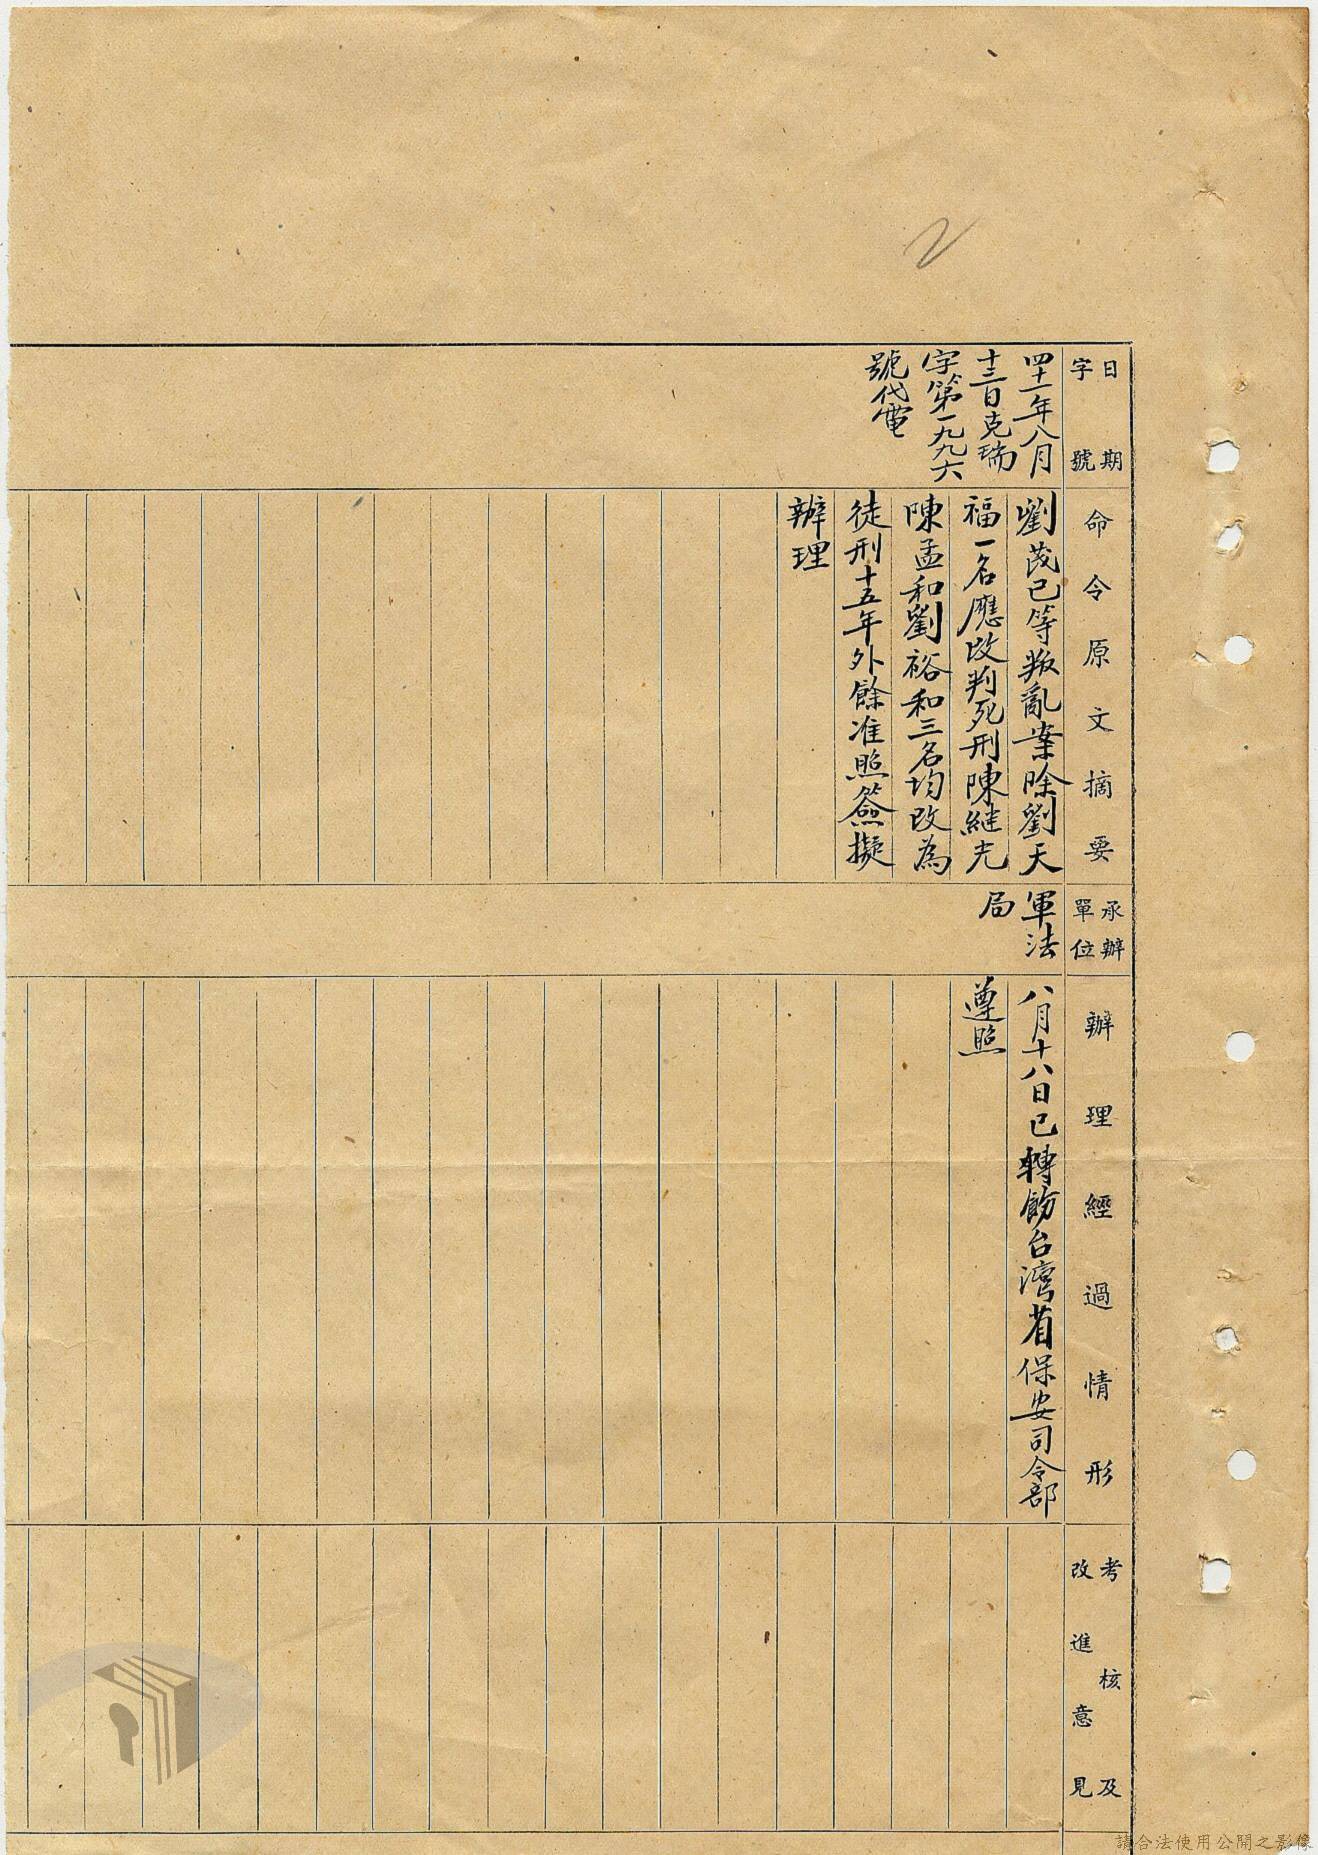 2
日期
字號
四十一年八月
十三日克瑞
字第一九九六
號代電
命令原文摘要
劉茂己等叛亂案除劉天
福一名應改判死刑陳繼光
陳孟和劉裕和三名均改為
徒刑十五年外餘准照簽擬
辦理
承辦
單位
軍法
局
辦理經過情形
八月十八日已轉飭台灣省保安司令部
遵照
考核及
改進意見
請合法使用公開之影像